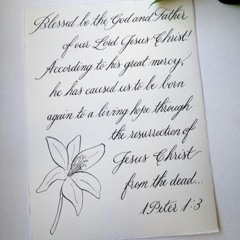 Blessed be the God and Father
of our Lord Jesus Christ!
According to his great mercy,
he has caused us to be born
again to a living hope through
the resurrection of
Jesus Christ
from the dead...
1 Peter 1:3